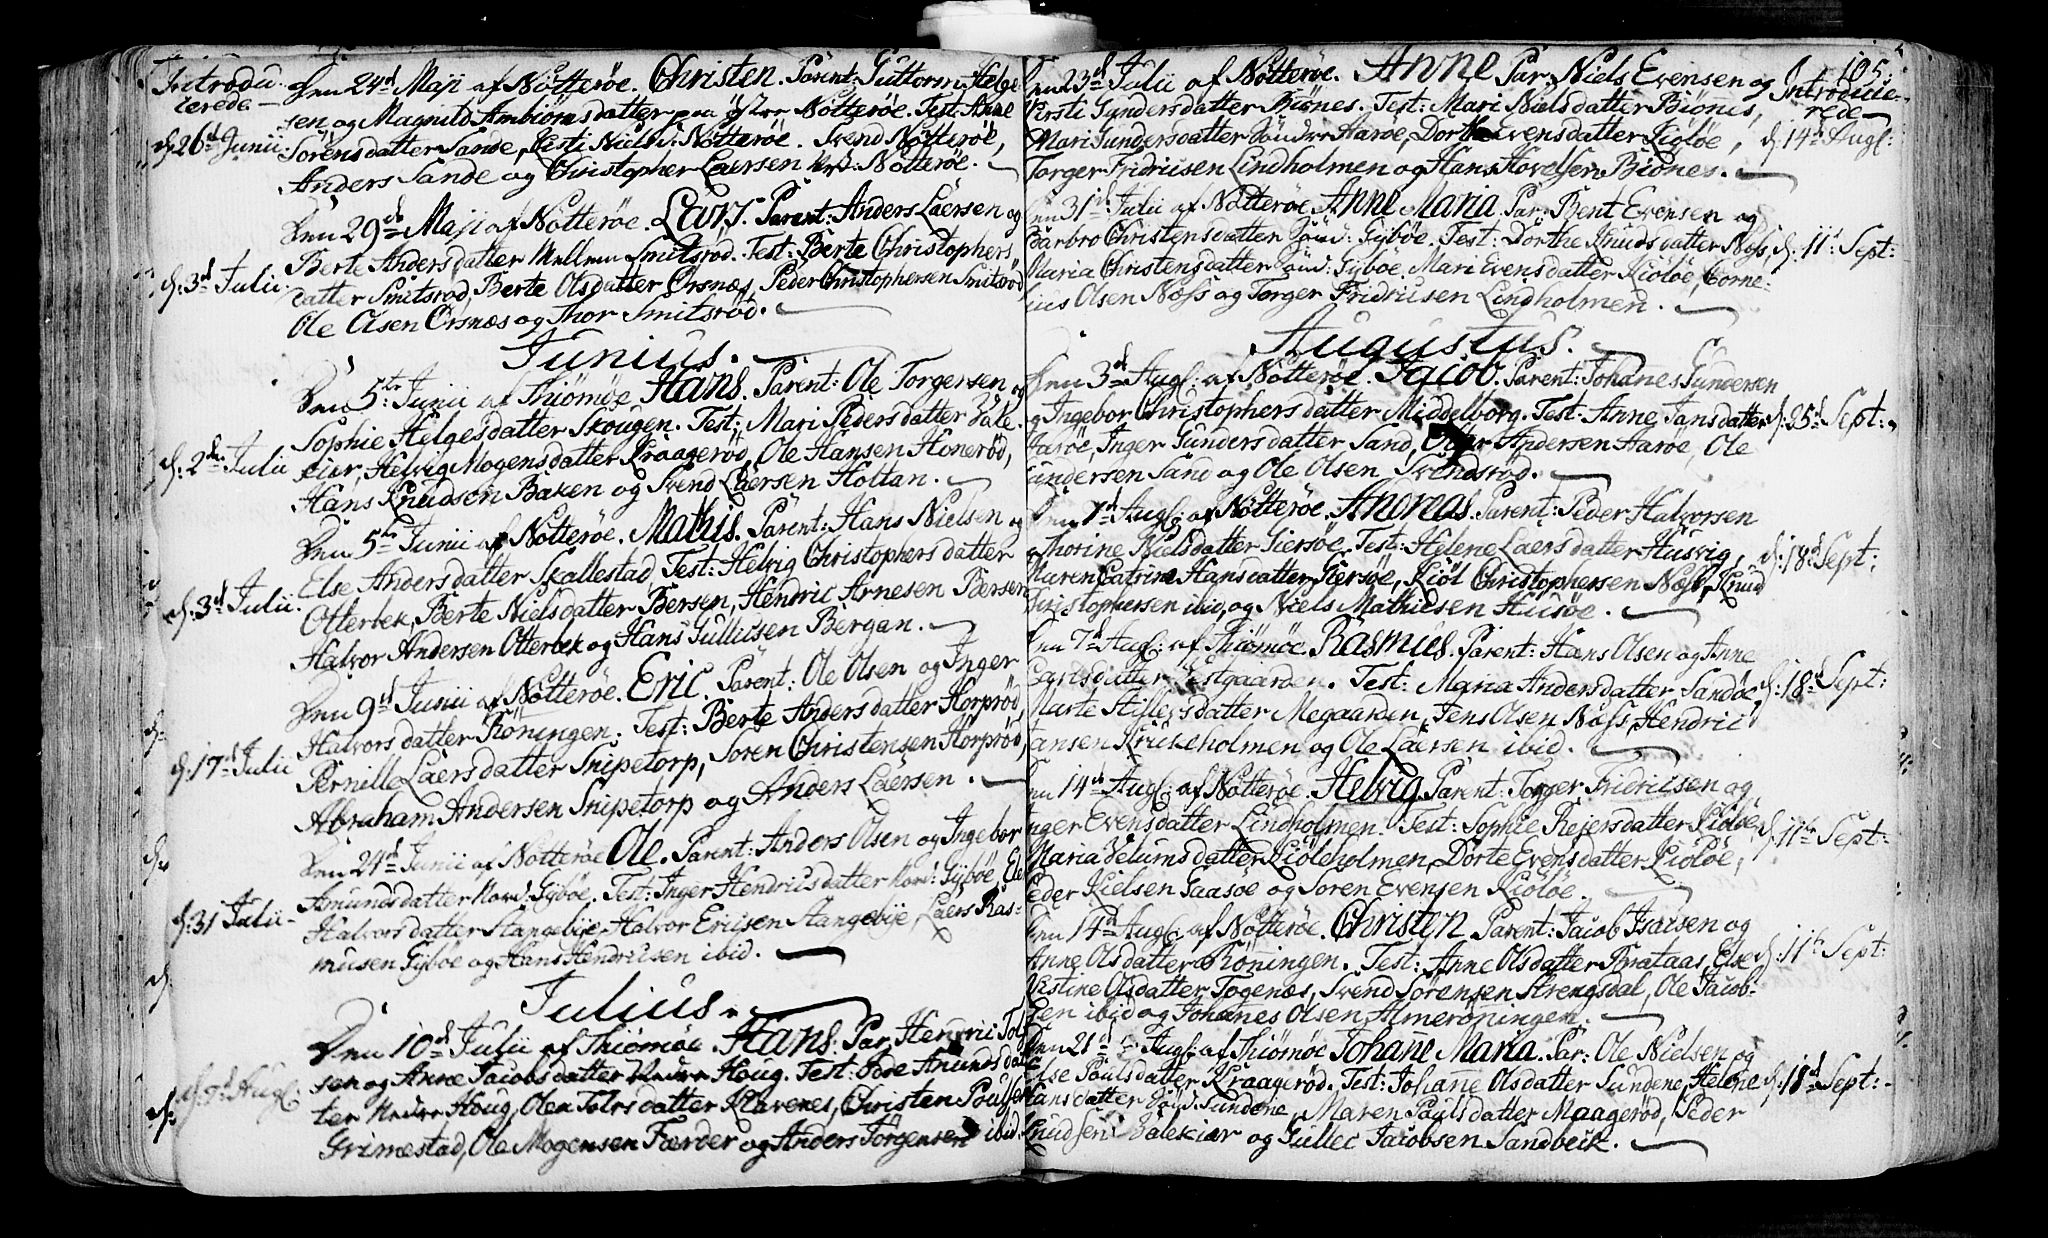 Introdu
cerede
Den 24de Maji af Nötteröe. Christen. Parent: Guttorm Helge
sen og Magnild Ambiörnsdatter paa Nötteröe. Test: Anne
d: 26de Junii. Sörensdatter Sande, Kirsti Nielsd: Nötteröe. Svend Nötteröe,
Anders Sande og Christopher Laersen Nötteröe.
Den 29de Maji af Nötteröe. Lars. Parent: Anders Laersen og
Berte Andersdatter Mellem Smitsrod. Test: Berte Christophers
d: 3de Julii. datter Smitsrod, Berte Olsdatter Orsnæs, Peder Christophersen Smitsrod,
Ole Olsen Orsnæs og Thor Smitsröd.
Junius.
Den 5te Junii af Thiömöe Hans. Parent: Ole Torgersen og
Sophie Helgesdatter Skougen. Test: Mari Pedersdatter Bake
d: 2den Julii kier, Helvig Mogensdatter Kraageröd, Ole Hansen Honeröd,
Hans Knudsen Baken og Svend Laersen Holtan.
Den 5te Junii af Nötteröe. Mathis. Parent: Hans Nielsen og
Else Andersdatter Skallestad. Test: Helvig Christophersdatter
d: 3de Julii. Otterbek, Berte Nielsdatter Bersen, Hendric Arnesen Bærsen
Halvor Andersen Otterbek og Hans Gullicsen Bergan.
Den 9de Junii af Nötteröe. Eric. Parent: Ole Olsen og Inger
Halvorsdatter Röningen. Test: Berte Andersdatter Horpröd,
d: 17de Julii Pernille Laersdatter Snipetorp, Soren Christensen Horpröd,
Abraham Andersen Snipetorp og Anders Laersen.
Den 24de Junii af Nötteröe Ole. Parent: Anders Olsen og Ingebor
Amundsdatter Nord: Gyböe. Test: Inger Hendricsdatter Nord: Gyböe, Elen
d: 31 Julii Halvorsdatter Hangebije, Halvor Ericsen Hangebije, Laers Ras-
musen Gyböe og Hans Hendricsen ibid.
Julius.
Den 10de Julii af Thiömöe. Hans. Par. Hendric Tols
sen og Anne Jacobsdatter Houg. Test: Amundsdat
d: 7de Augl: ter Houg, Olea Tolvsdatter Klavenes, Christen Poulsen
Grimestad, Ole Mogensen Færder og Anders Torgensen ibid.
105.
Introducie-
rede
Den 23de Julii af Nötteröe. Anne Par: Niels Evensen og
Kirsti Gundersdatter Biönes. Test: Mari Nielsdatter Biönes,
Mari Gundersdatter Haröe, Dorthe Evensdatter Kiölöe, d: 14de Augl:
Torger Fridricsen Lindholmen og Hans Hovelsen Biönes.
Den 31de Julii af Nötteröe Anne Maria. Par: Bent Evensen og
Barbro Christensdatter Sönd: Gyböe. Test: Dorthe Knudsdatter Næss, d: 11te Sept:
Maria Christensdatter Sönd: Gyböe, Mari Evensdatter Kiölöe, Corne-
lius Olsen Næss og Torger Fridricsen Lindholmen.
Augustus.
Den 3de Augl: af Nötteröe. Jacob. Parent: Johanes Gundersen
og Ingebor Christophersdatter Middelborg. Test: Anne Jansdatter d: 25de Sept:
Haröe, Inger Gundersdatter Sand, Andersen Haröe, Ole
Gundersen Sand og Ole Olsen Svendsrod.
Den 7de Augl: af Nötteröe. Andreas. Parent: Peder Halvorsen
og Thorine Nielsdatter Giersöe. Test: Helene Laersdatter Husvig, d: 18de Sept:
Maren Catrine Hansdatter Giersöe, Kiöl Christophersen Næss, Knud
Christophersen ibid, og Niels Mathiesen Husöe.
Den 7de Augl: af Thiömöe. Rasmus. Parent: Hans Olsen og Anne
Carlsdatter Östgaarden. Test: Maria Andersdatter Sandöe, d: 18de Sept:
Marte datter Megaarden, Jens Olsen Næss, Hendric
Hansen Krukeholmen og Ole Laersen ibid.
Den 14de Augl: af Nötteröe. Helvig. Parent: Torger Fridricsen og
Inger Evensdatter Lindholmen. Test: Sophie Rejersdatter Kiölöe, d: 11te Sept:
Maria Velumsdatter Kiöleholmen, Dorte Evensdatter Kiölöe,
Peder Kielsen Gaasöe og Soren Evensen Kiölöe.
Den 14de Augl: af Nötteröe. Christen Parent: Jacob Isacsen og
Anne Olsdatter Röningen. Test: Anne Olsdatter Brataas, Else d: 11te Sept:
Kistine Olsdatter Togenæs, Svend Sörensen Strengsdal, Ole Jacob-
sen ibid og Johanes Olsen Almeröningen.
Den 21de Augl: af Thiömöe Johane Maria. Par: Ole Nielsen og
Else Poulsdatter Kraageröd. Test: Johane Olsdatter Sundene, Helene d: 18de Sept:
Hansdatter Sönd: Sundene, Maren Paulsdatter Maageröd, Peder
Knudsen Balekiær og Gullec Jacobsen Sandbeck.